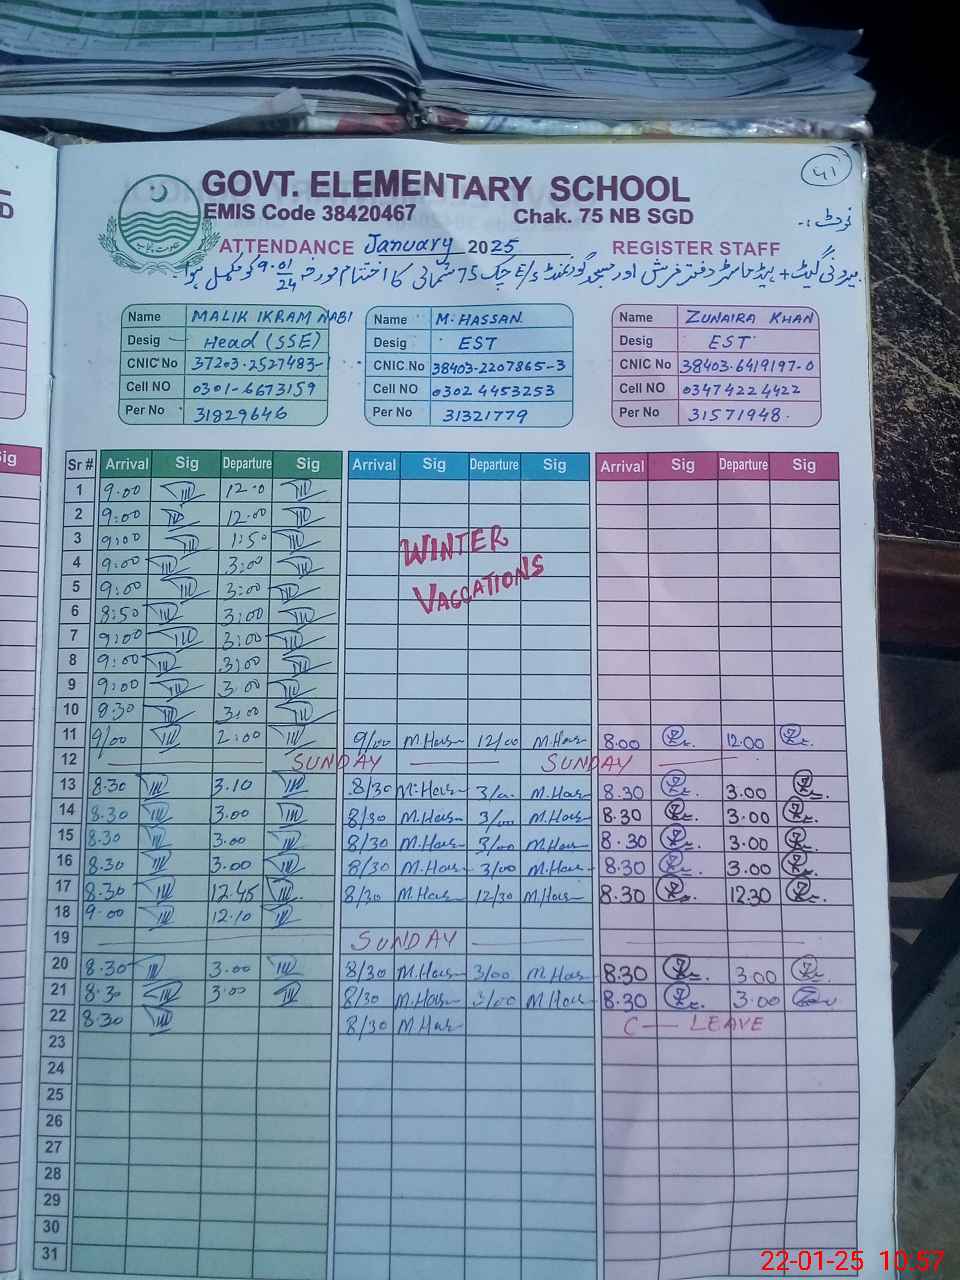 GOVT. ELEMENTARY SCHOOL
EMIS Code 38420467 Chak. 75 NB SGD
ATTENDANCE January 2025 REGISTER STAFF
نوٹ:۔
Name MALIK IKRAM NABI Name M. HASSAN Name ZUNAIRA KHAN
Desig Head (SSE) Desig EST Desig EST
CNIC No 37203-2527483-1 CNIC No 38403-2207865-3 CNIC No 38403-6419197-0
Cell NO 0301-6673159 Cell NO 0302 4453253 Cell NO 03474224422
Per No 31829646 Per No 31321779 Per No 31571948
Sig
Sr # Arrival Sig Departure Sig Arrival Sig Departure Sig Arrival Sig Departure Sig
1 9.00 12.0
2 9:00 12.00
3 9:00 1:50
WINTER
4 9:00 3:00
5 9:00 3:00
VACCATIONS
6 8:50 3:00
7 9:00 3:00
8 9:00 3:00
9 9:00 3.00
10 8:30 3:00
11 9/00 2:00 9/00 M.Has 12/00 M.Has 8.00 12.00
12 SUNDAY SUNDAY
13 8.30 3.10 8/30 M.Has 3/00 M.Has 8.30 3.00
14 8.30 3.00 8/30 M.Has 3/00 M.Has 8.30 3.00
15 8.30 3.00 8/30 M.Has 3/00 M.Has 8.30 3.00
16 8.30 3.00 8/30 M.Has 3/00 M.Has 8.30 3.00
17 8.30 12.45 8/30 M.Has 12/30 M.Has 8.30 12.30
18 9.00 12.10
19 SUNDAY
20 8.30 3.00 8/30 M.Has 3/00 M.Has 8.30 3.00
21 8.30 3.00 8/30 M.Has 3/00 M.Has 8.30 3.00
22 8.30 8/30 M.Has C — LEAVE
23
24
25
26
27
28
29
30
31
22-01-25 10:57